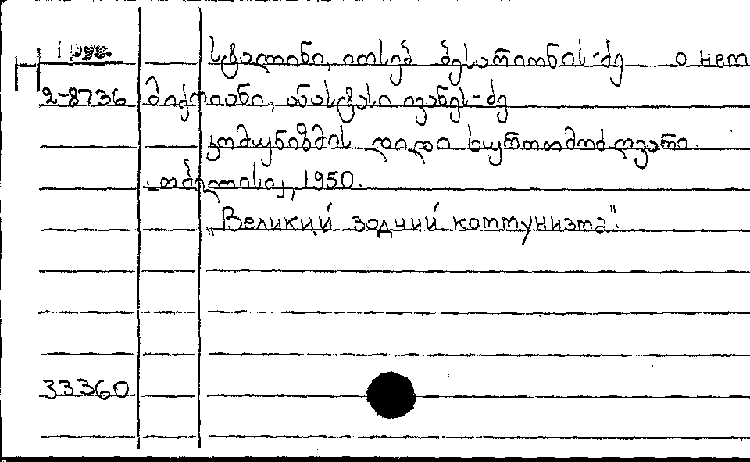 სტალინი, იოსებ ბესარიონის-ძე о нем
2-8736 მიქოიანი, ანასტასი ივანეს-ძე
კომუნიზმის დიდი ხუროთმოძღვარი.
თბილისი, 1950.
"Великий зодчий коммунизма".
33360